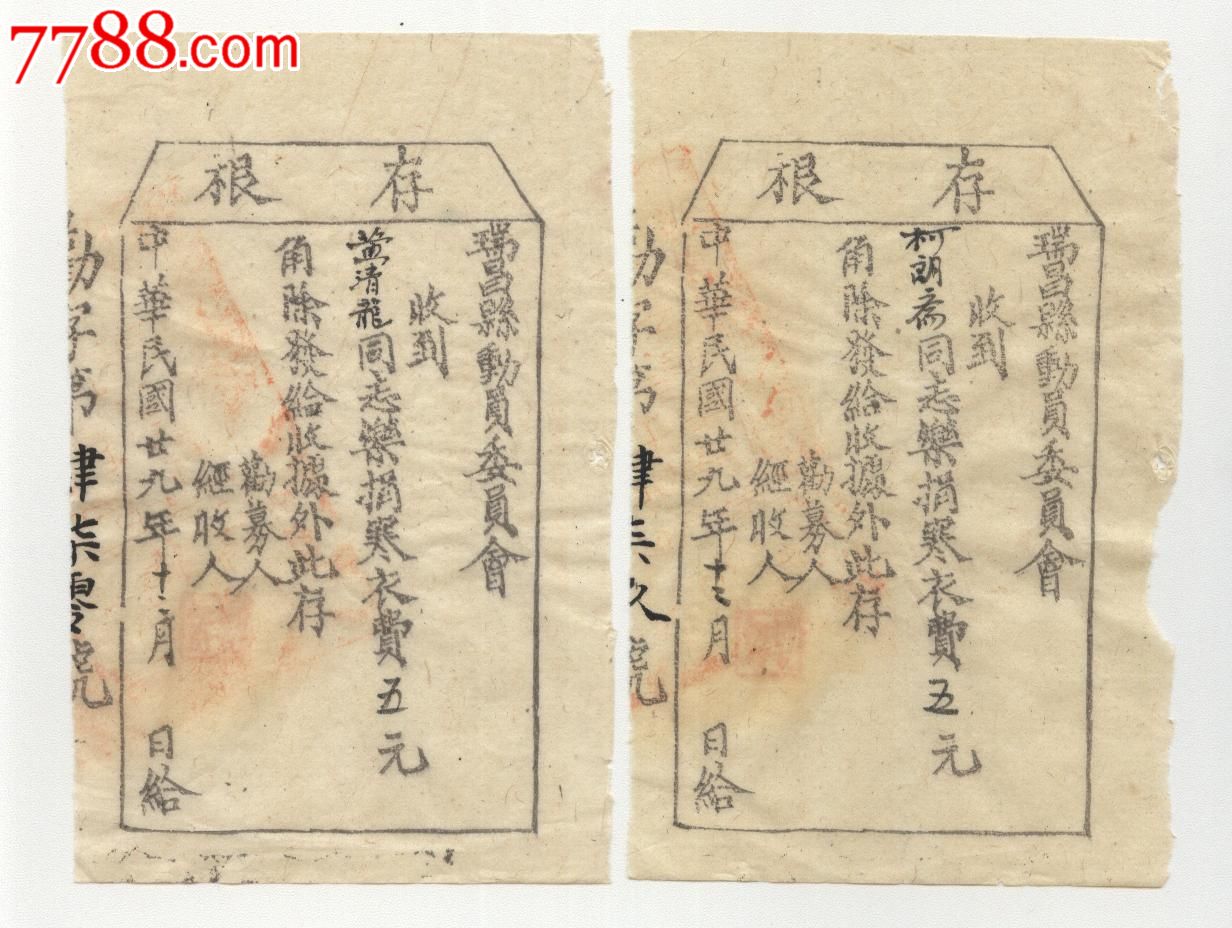 7788.com
存根
瑞昌縣動員委員會
收到
黃清龍同志樂捐寒衣費五元
角除發給收據外此存
勸募人
經收人
中華民國廿九年十二月 日給
動字第 肆柒零號
存根
瑞昌縣動員委員會
收到
柯朗齋同志樂捐寒衣費五元
角除發給收據外此存
勸募人
經收人
中華民國廿九年十二月 日給
動字第 肆三久號